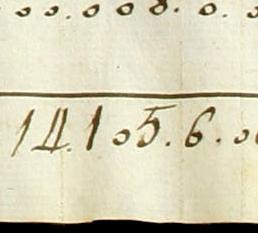 00.008.0.0
14.105.6.00